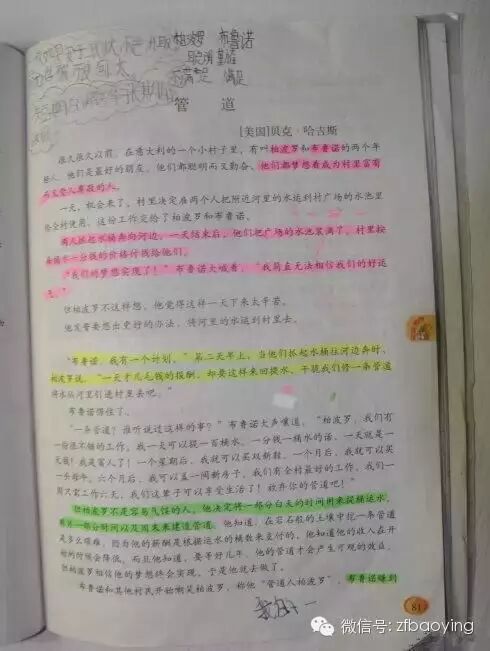 柏波罗 布鲁诺
不满足 满足
管道
[美国]贝克·哈吉斯
很久很久以前，在意大利的一个小村子里，有叫柏波罗和布鲁诺的两个年
轻人，他们是最好的朋友，他们都聪明而又勤奋。他们都梦想着成为村里富有
而又受人尊敬的人。
一天，机会来了，村里决定雇两个人把附近河里的水运到村广场的水池里
供全村使用，这份工作交给了柏波罗和布鲁诺。
两人抓起水桶奔向河边，一天结束后，他们把广场的水池装满了，村里按
每桶水一分钱的价格付钱给他们。
“我们的梦想实现了！”布鲁诺大喊着，“我简直无法相信我们的好运
气。”
但柏波罗不这样想，他觉得这样一天下来太辛苦。
他发誓要想出更好的办法，将河里的水运到村里去。
“布鲁诺，我有一个计划，”第二天早上，当他们抓起水桶往河边奔时，
柏波罗说，“一天才几毛钱的报酬，却要这样来回提水，干脆我们修一条管道
将水从河里引进村里去吧。”
布鲁诺愣住了。
“一条管道？谁听说过这样的事？”布鲁诺大声嚷道，“柏波罗，我们有
一份很不错的工作。我一天可以提一百桶水，一分钱一桶水的话，一天就是一
元钱！我是富人了！一个星期后，我就可以买双新鞋，一个月后，我就可以买
一头母牛，六个月后，我可以盖一间新房子。我们有全村最好的工作，我们一
周只需工作六天，我们这辈子可以享受生活了！放弃你的管道吧！”
但柏波罗不是容易气馁的人，他决定将一部分白天的时间用来提桶运水，
用另一部分时间以及周末来建造管道。他知道，在岩石般的土壤中挖一条管道
是多么艰难，因为他的薪酬是根据运水的桶数来支付的，他知道他的收入在开
始的时候会降低，而且他知道，要等好几年，他的管道才会产生可观的效益。
但柏波罗相信他的梦想终会实现，于是他就去做了。
布鲁诺和其他村民开始嘲笑柏波罗，称他“管道人柏波罗”，布鲁诺赚到
81
微信号: zfbaoying